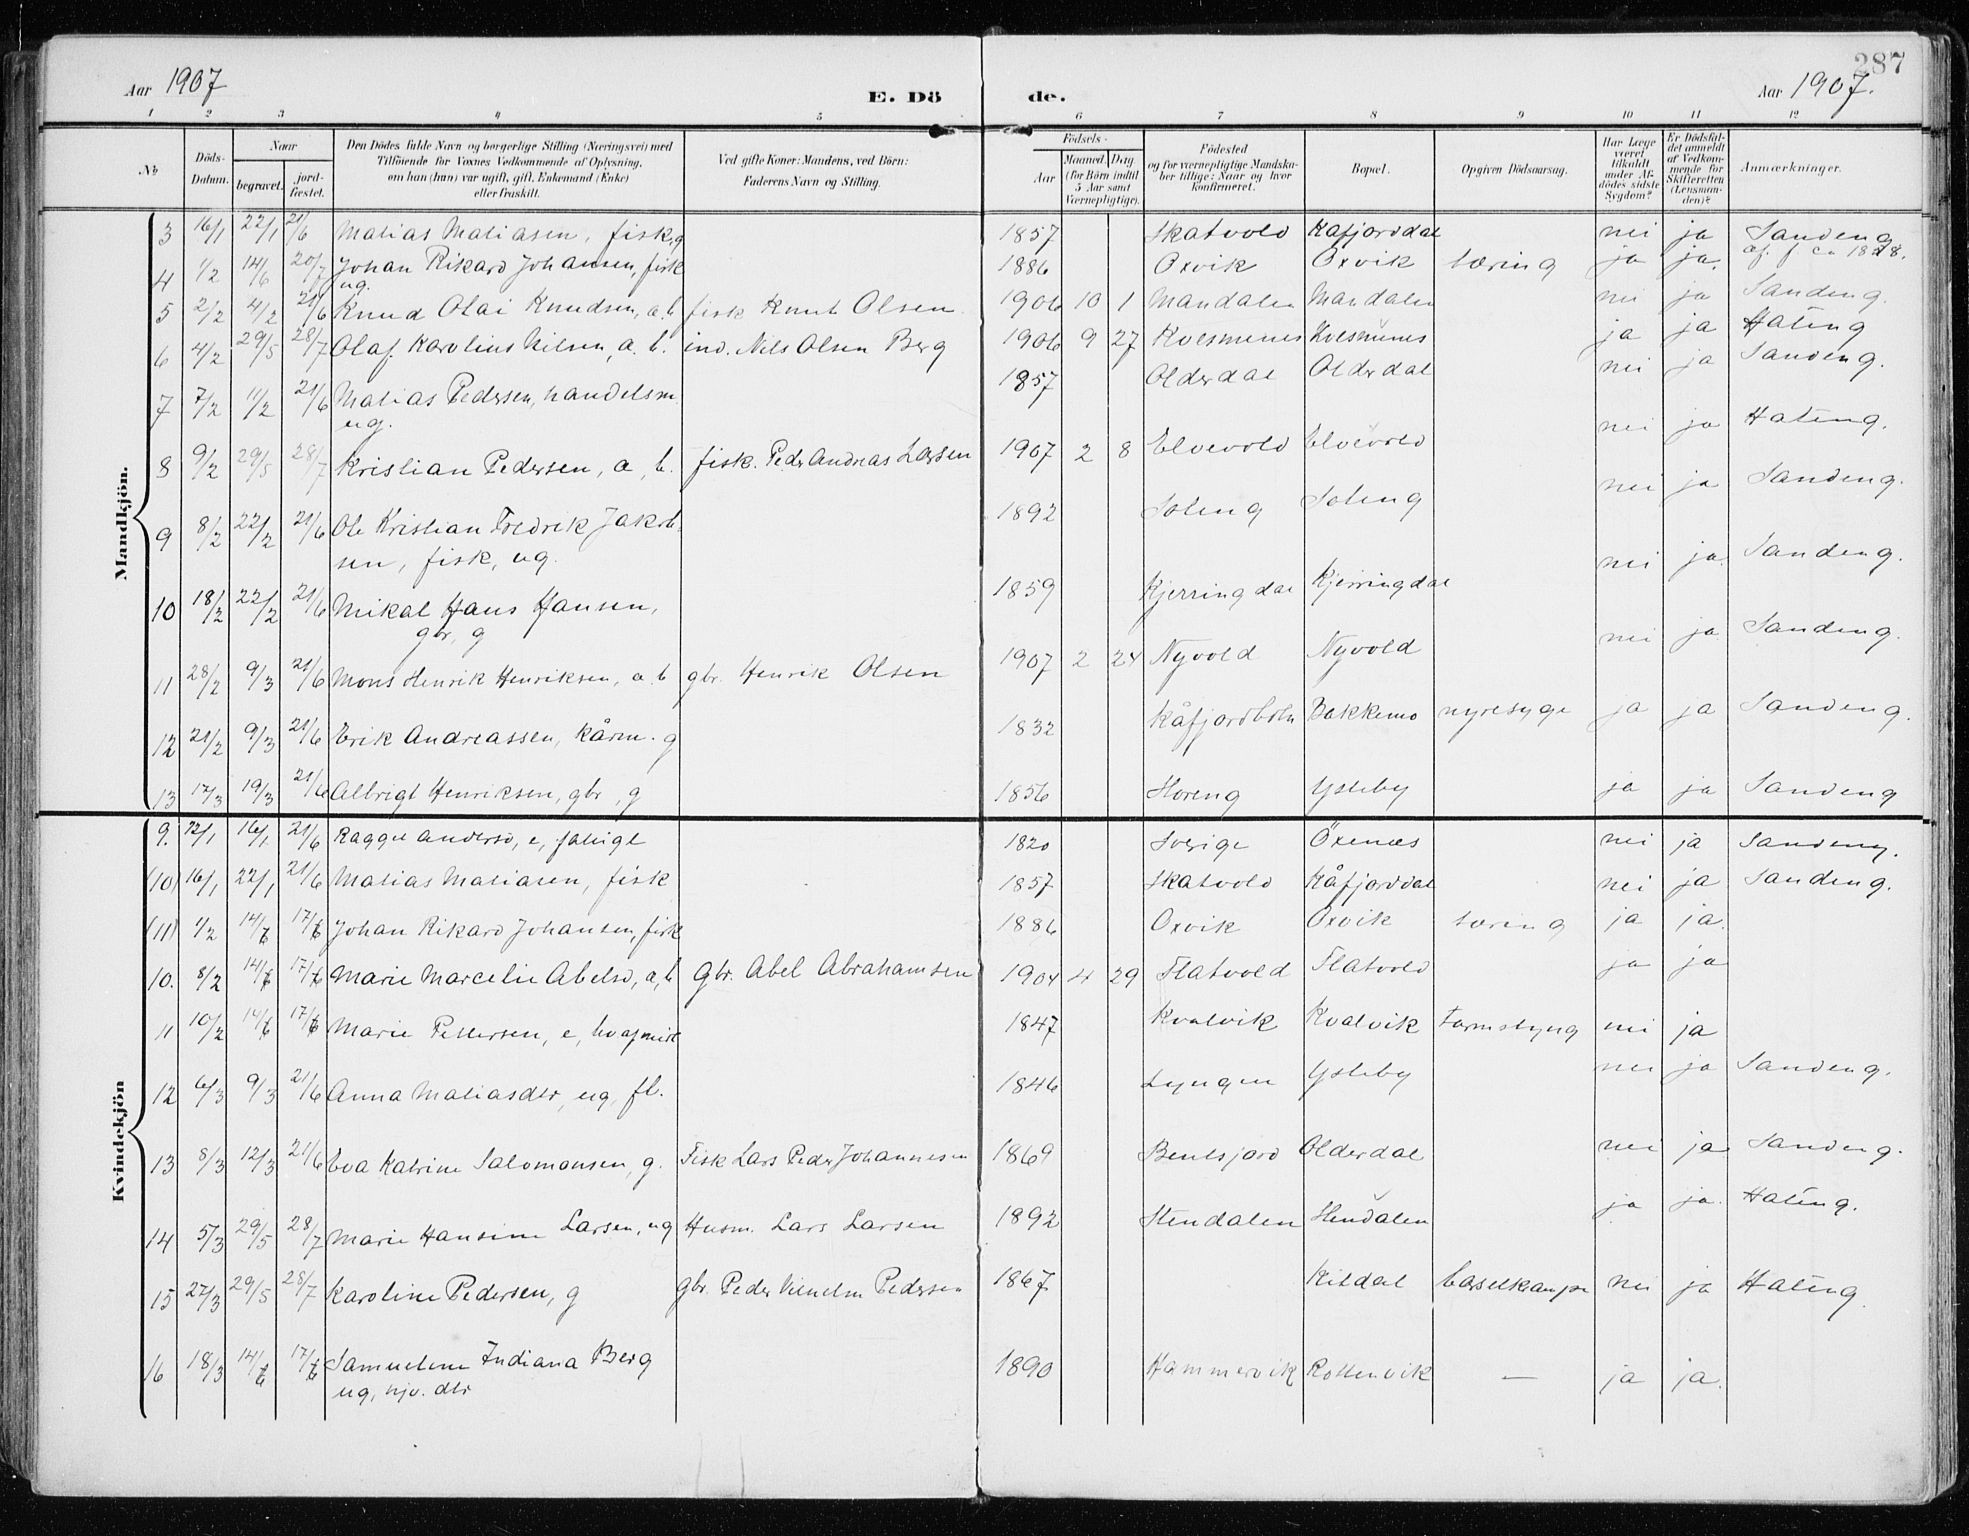 287
Aar 1907
E. Dö de.
Aar 1907.
1 2 3 4 5 6 7 8 9 10 11 12
No
Döds-Datum.
Naar
begravet.
jord-fæstet.
Den Dödes fulde Navn og borgerlige Stilling (Næringsvei) med
Tilföiende for Voxnes Vedkommende af Oplysning,
om han (hun) var ugift, gift, Enkemand (Enke)
eller fraskilt.
Ved gifte Koner: Mandens, ved Börn:
Faderens Navn og Stilling.
Födsels-
Aar
Maaned. Dag.
(for Börn indtil
5 Aar samt
Værnepligtige).
Födested
og for værnepligtige Mandska-
ber tillige: Naar og hvor
konfirmeret.
Bopæl.
Opgiven Dödsaarsag.
Har Læge
været
tilkaldt
under Af-
dödes sidste
Sygdom?
Er Dödsfal-
det anmeldt
af Vedkom-
mende for
Skifteretten
(Lensman-
den)?
Anmærkninger.
Mandkjön.
3 16/1 22/1 21/6 Matias Matiasen, fisk, g 1857 Skatvold Kafjorddal nei ja Sandeng
4 1/2 14/6 20/7 Johan Rikard Johansen, fisk 1886 Oxvik Oxvik tæring ja ja. af. f. ca 1828.
ug.
5 2/2 4/2 21/6 Knud Olai Knudsen, a. b. fisk Knut Olsen 1906 10 1 Mandalen Mandalen nei ja Sandeng.
6 4/2 29/5 28/7 Olaf Karolius Nilsen, a. b. ind. Nils Olsen Berg 1906 9 27 Kvesmenes Kvesmenes ja ja Hateng
7 7/2 11/2 21/6 Matias Pedersen, handelsm. 1857 Olderdal Olderdal nei ja Sandeng.
ug.
8 9/2 29/5 28/7 Kristian Pedersen, a, b. fisk. Peder Andreas Larsen 1907 2 8 Elvevold Elvevold nei ja Hateng.
9 8/2 22/2 21/6 Ole Kristian Fredrik Jakob- 1892 Soleng Soleng nei ja Sandeng.
sen, fisk, ug.
10 18/2 22/2 21/6 Mikal Hans Hansen, 1859 Kjerringdal Kjerringdal nei ja Sandeng.
gbr, g
11 28/2 9/3 21/6 Mons Henrik Henriksen, a. b gbr. Henrik Olsen 1907 2 24 Nyvold Nyvold nei ja Sandeng.
12 21/2 9/3 21/6 Erik Andreassen, kårm. g 1832 Kåfjordbotn Bakkemo nyresyge ja ja Sandeng.
13 17/3 19/3 21/6 Albrigt Henriksen, gbr, g 1856 Horeng Ysteby ja ja Sandeng
Kvindekjön
9. 12/1 16/1 21/6 Ragge Andersd, e, 1820 Sverige Öxenæs nei ja Sandeng.
(10) 16/1 22/1 21/6 Matias Matiasen, fisk 1857 Skatvold Kåfjorddal nei ja Sandeng.
(11) 1/2 14/6 17/6 Johan Rikard Johansen, fisk 1886 Oxvik Oxvik tæring ja ja.
10. 8/2 14/6 17/6 Marie Marcelie Abelsd, a, b Gbr. Abel Abrahamsen 1904 4 29 Flatvold Flatvold ja ja
11 10/2 14/6 17/6 Marie Pettersen, e, 1847 Kvalvik Kvalvik Tarmslyng nei ja
12 6/3 9/3 21/6 Anna Matiasdtr, ug, fl. 1846 Lyngen Ysteby nei ja Sandeng.
13 8/3 12/3 21/6 Eva Katrine Salomonsen, g. Fisk Lars Peder Johannesen 1869 Bentsjord Olderdal nei ja Sandeng.
14 5/3 29/5 28/7 Marie Hansine Larsen, ug Husm. Lars Larsen 1892 Stendalen Stendalen ja ja. Hateng.
15 27/3 29/5 28/7 Karoline Pedersen, g gbr. Peder Vilhelm Pedersen 1867 Kitdal barselkrampe nei ja Hateng.
16 18/3 14/6 17/6 Samueline Indiana Berg 1890 Hammervik Rottenvik — ja ja.
ug, hjv. dtr